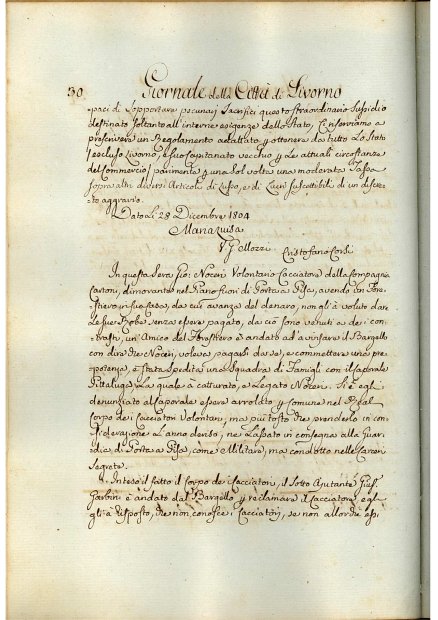 30 Giornale della Città di Livorno
paci di sopportare pecuniarj sacrifici questo straordinario sussidio
destinato soltanto all'interne esigenze dello Stato, Ci riserviamo a
prescrivere un Regolamento addattato, ed ottenere da tutto lo Stato
escluso Livorno, e suo Capitanato vecchio le attuali circostanze
del Commercio pacimenti una sol volta una moderata Tassa
sopra altri diversi Articoli di Lusso, e di Lucri suscettibili di un discre-
to aggravio.
Dato Li 28 Dicembre 1804
Maria Luisa
V. G. Mozzi
Cristofano Corsi
In questa Sera Gio: Noceri Volontario Cacciatore della Compagnia
Cartoni, dimorante nel Piano fuori di Porta a Pisa, avendo un Fore-
stiero in sua Casa, da cui avanza del denaro, non gli à voluto dare
le sue Robe senza essere pagato, da ciò sono venuti a dei con-
trasti, un Amico del Forestiero è andato ad avvisare il Bargello
con dire che Noceri, voleva pagarsi da se, e commettere una pre-
potenza, è stata spedita una Squadra di Famigli con il Caporale
Pittaluga La quale à catturato, e Legato Noceri. Si è egli
denunziato al Caporale essere arrolato, e Comune nel Real
Corpo dei Cacciatori Volontari, ma più tosto che prenderlo in con-
siderazione L'anno deriso, ne Lassato in consegna alla Guar-
dia di Porta a Pisa, come Militare, ma condotto nelle Carceri
Segrete.
Inteso il fatto il Corpo dei Cacciatori, il Sotto Ajutante Gius.
Garbini è andato dal Bargello, e reclamare il Cacciatore, egli
gli à risposto, che non conosce i Cacciatori, se non allor che essi